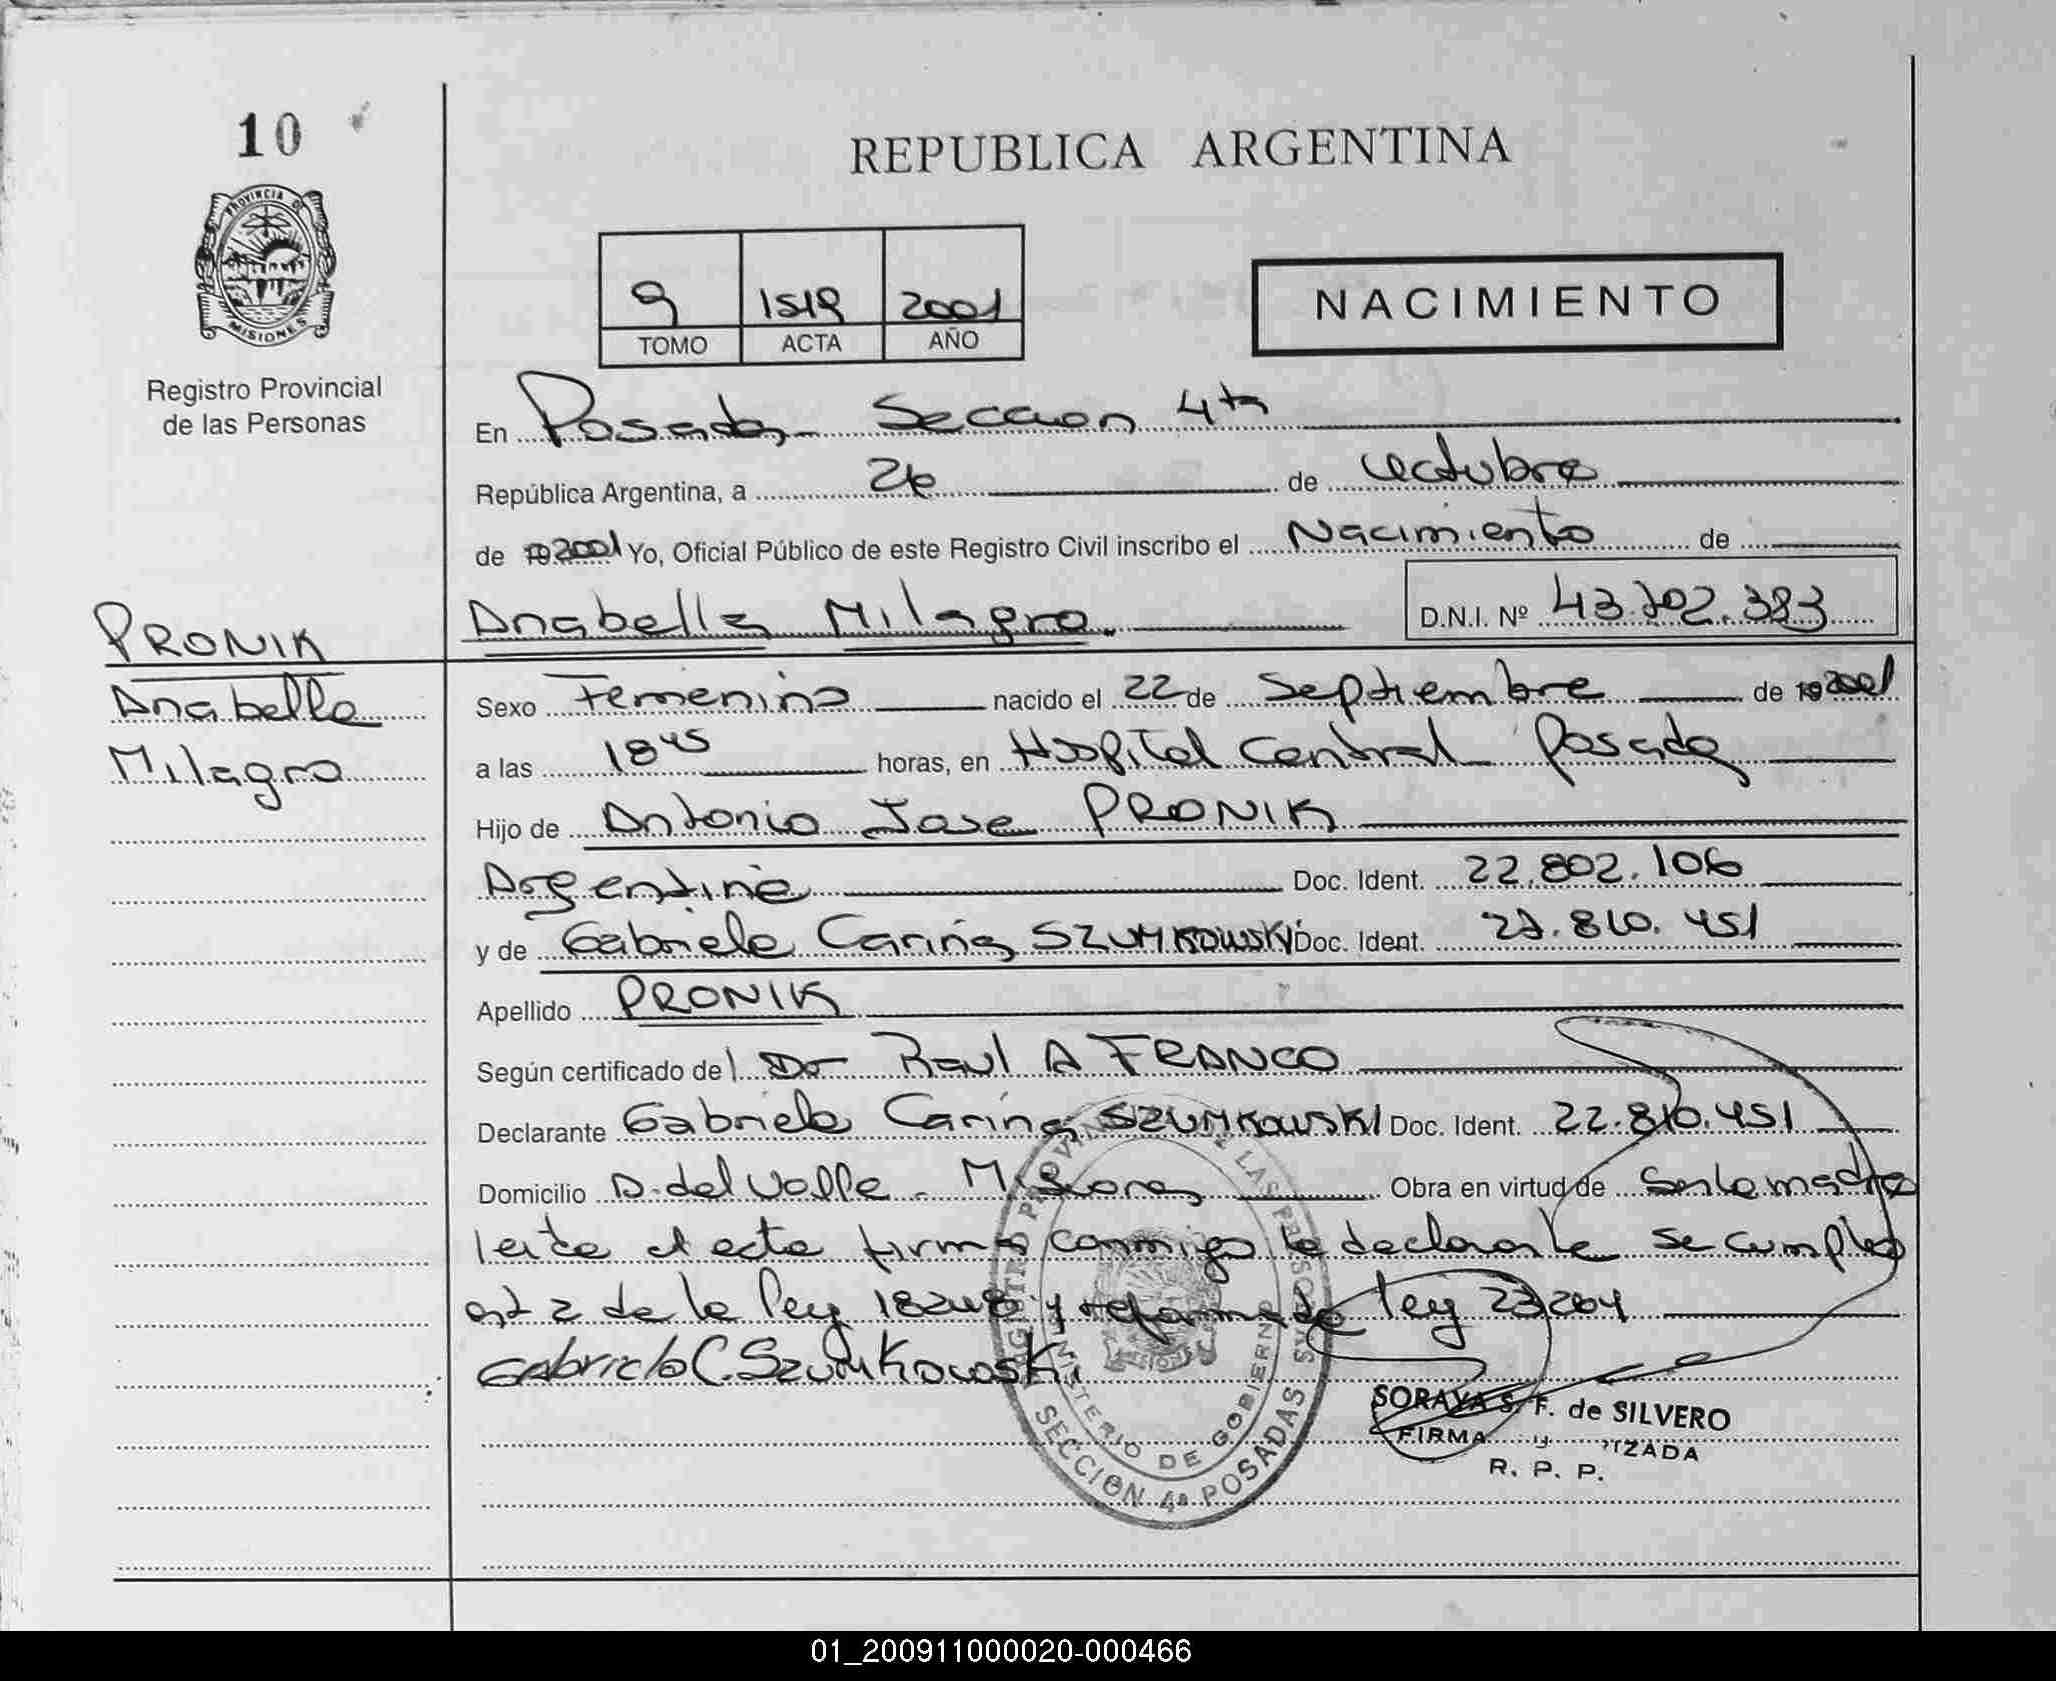 10
REPUBLICA ARGENTINA
PROVINCIA DE
MISIONES
Registro Provincial
de las Personas
9 1519 2001
TOMO ACTA AÑO
NACIMIENTO
En Posadas Seccion 4ta
República Argentina, a 26 de octubre
de 2001 Yo, Oficial Público de este Registro Civil inscribo el Nacimiento de
Anabella Milagro. D.N.I. Nº 43.702.383
PRONIK
Anabella
Milagro
Sexo Femenino nacido el 22 de Septiembre de 2001
a las 18 45 horas, en Hospital Central Posadas
Hijo de Antonio Jose PRONIK
Argentino Doc. Ident. 22.802.106
y de Gabriela Carina SZUMKOWSKI Doc. Ident. 22.810.451
Apellido PRONIK
Según certificado del Dr Raul A FRANCO
Declarante Gabriela Carina SZUMKOWSKI Doc. Ident. 22.810.451
Domicilio A. del Valle - Misiones Obra en virtud de ser la madre
leida el acta firma conmigo la declarante se cumple
art 2 de la ley 18248 y reforma de ley 23264
Gabriela C. Szumkowski
SORAYA S. F. de SILVERO
FIRMA
R. P. P.
MINISTERIO DE GOBIERNO
SECCION 4ª POSADAS
01_200911000020-000466